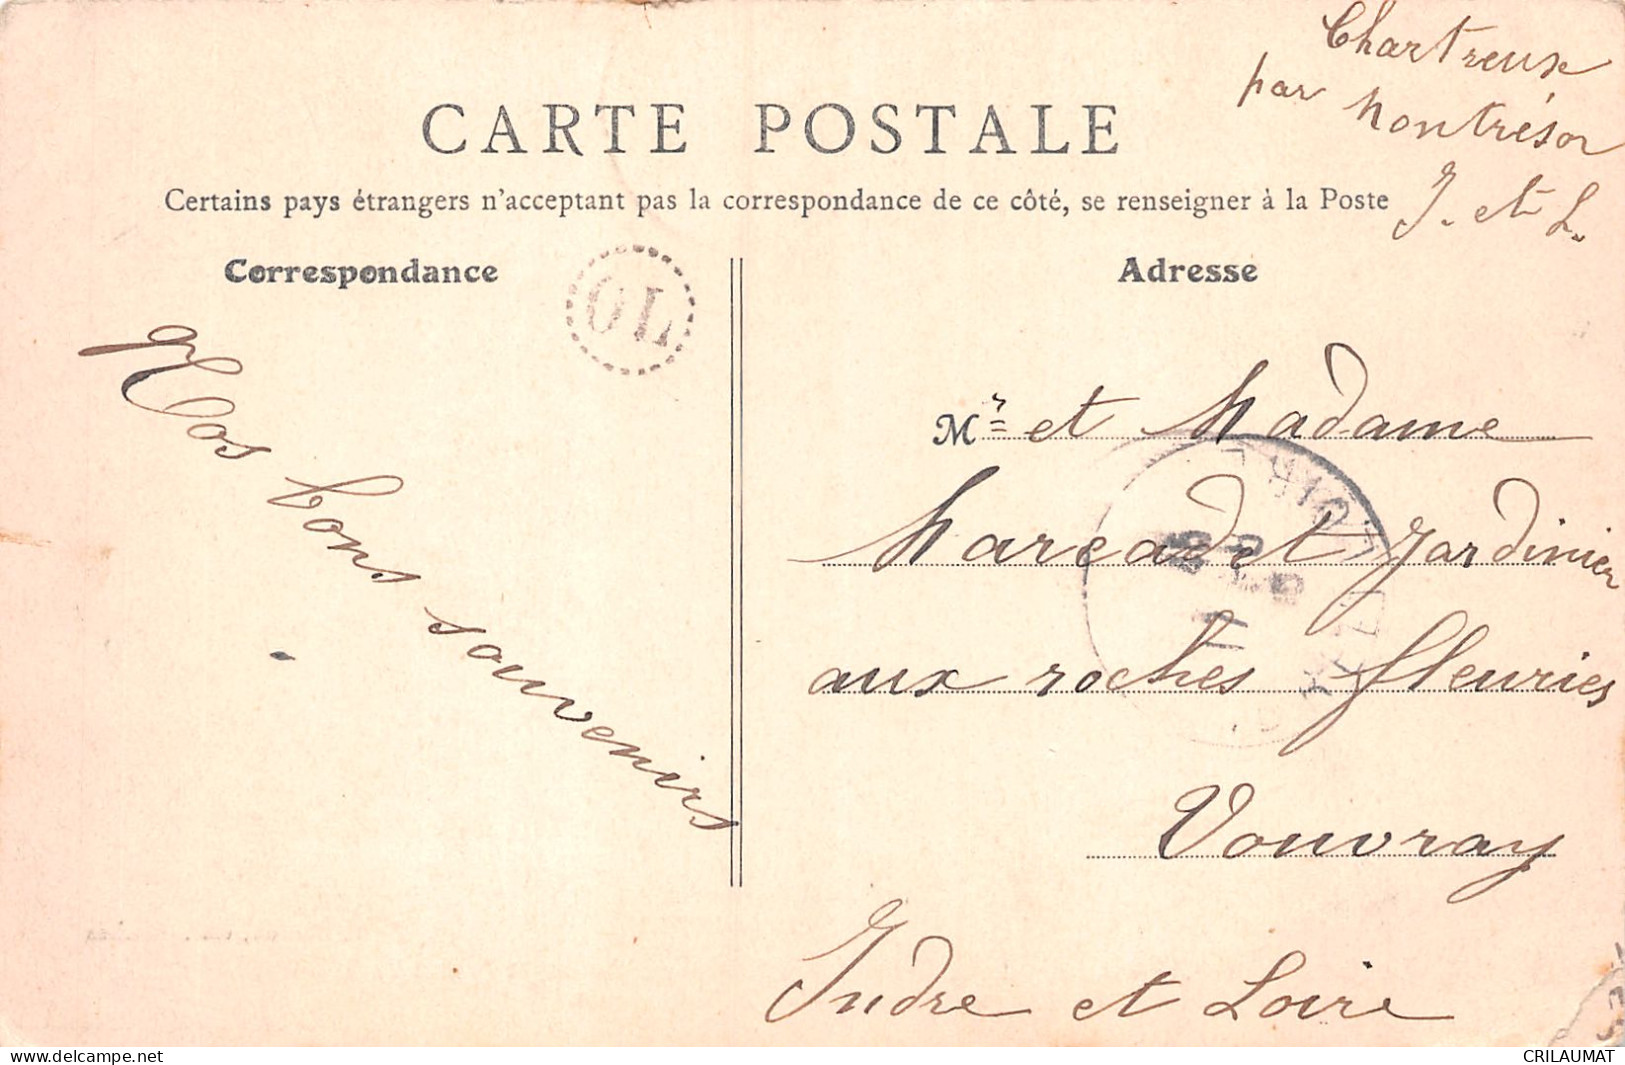 Chartreux
par Montrésor
I. et L.
CARTE POSTALE
Certains pays étrangers n'acceptant pas la correspondance de ce côté, se renseigner à la Poste
Correspondance
OL
Nos bons souvenirs
Adresse
Mr et Madame
Marcadet Jardinier
aux roches fleuries
Vouvray
Indre et Loire
www.delcampe.net
CRILAUMAT